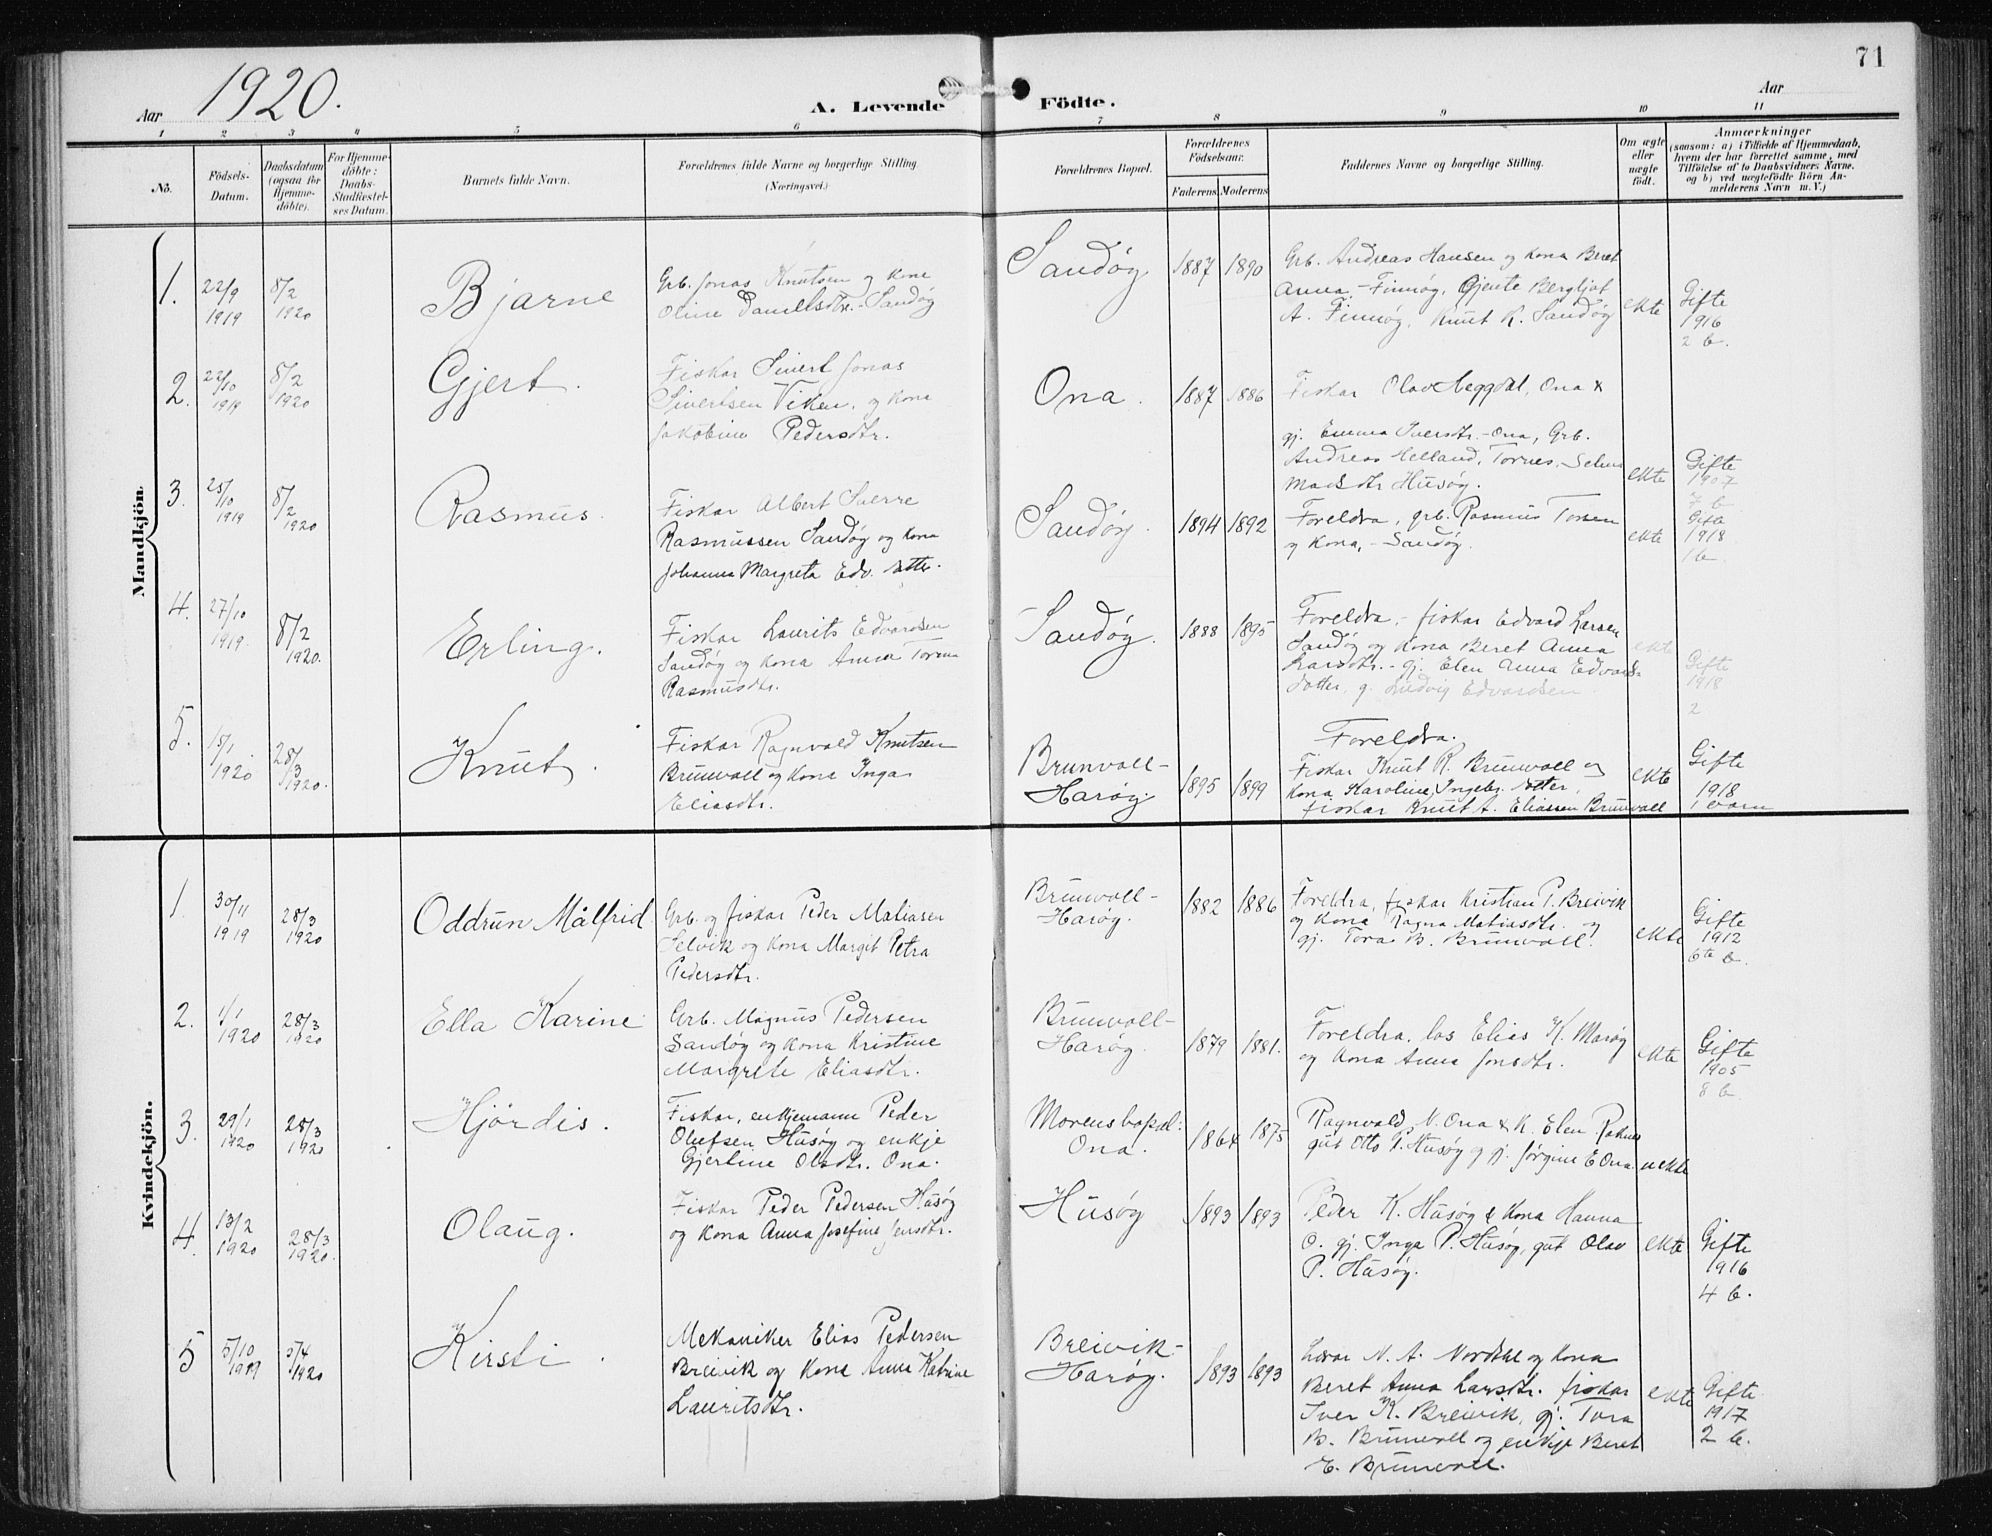 71
Aar 1920.
A. Levende Födte.
Aar
1 2 3 4 5 6 7 8 9 10 11
No.
Födsels-
Datum.
Daabsdatum
(ogsaa for
Hjemme-
döbte).
For Hjemme-
döbte:
Daabs-
Stadfæstel-
ses Datum.
Barnets fulde Navn.
Forældrenes fulde Navne og borgerlige Stilling.
(Næringsvei.)
Forældrenes Bopæl.
Forældrenes
Födselsaar.
Faderens Moderens
Faddernes Navne og borgerlige Stilling.
Om ægte
eller
uægte
födt.
Anmærkninger
(saasom: a) i Tilfælde af Hjemmedaab,
hvem der har forrettet samme, med
Tilföielse af to Daabsvidners Navne.
og b) ved uægtefödte Börn An-
melderens Navn m. V.)
Mandkjön.
1.
22/9
1919
8/2
1920
Bjarne
Grb. Jonas Knutsen og kone
Oline Danielsdtr. Sandøy
Sandøy
1887 1890
Grb. Andreas Hansen og kona Beret
Anna - Finnøy, Gjente Bergljot
A. Finnøy, Knut R. Sandøy
ekte
Gifte
1916
2 b.
2.
22/10
1919
8/2
1920
Gjert.
Fiskar Sivert Jonas
Sivertsen Viken, og kona
Jakobine Pedersdtr.
Ona.
1887 1886
Fiskar Olav Heggdal, Ona &
gj. Emma Iversdtr. - Ona, Grb.
Andreas Helland, Tornes,
Husøy.
ekte
Gifte
1907
7 b
3.
25/10
1919
8/2
1920
Rasmus.
Fiskar Albert Sverre
Rasmussen Sandøy og kona
Johanna Margreta Edv. dotter.
Sandøy.
1894 1892
Foreldra, grb. Rasmus
og kona, - Sandøy.
ekte
Gifte
1918
1 b
4.
27/10
1919
8/2
1920.
Erling.
Fiskar Laurits Edvardsen
Sandøy og kona Anna
Rasmusdtr.
Sandøy.
1888 1895
Foreldra, - fiskar Edvard Larsen
Sandøy og kona Beret Anna
Larsdtr. - gj. Elen Anna Edvards-
dotter, g. Ludvig Edvardsen.
ekte
Gifte
1918
2
5.
15/1
1920
28/3
1920.
Knut.
Fiskar Ragnvald Knutsen
Brunvoll og kona Inga
Eliasdtr.
Brunvoll-
Harøy.
1895 1899
Foreldra.
Fiskar Knut R. Brunvoll og
kona Karoline Ingebr. dotter,
fiskar Knut A. Eliassen Brunvoll
ekte
Gifte
1918
1 barn
Kvindekjön.
1.
30/11
1919
28/3
1920
Oddrun Målfrid
Grb. og fiskar Peder Matiasen
Selvik og kona Margit Petra
Pedersdtr.
Brunvoll-
Harøy.
1882 1886
Foreldra, fiskar Kristian P. Breivik
og kona Ragna Matiasdtr. og
gj. Tora B. Brunvoll.
ekte
Gifte
1912
6te b.
2.
1/1
1920
28/3
1920
Ella Karine
Grb. Magnus Pedersen
Sandøy og kona Kristine
Margrete Eliasdtr.
Brunvoll-
Harøy.
1879 1881.
Foreldra, los Elias K. Marøy
og kona Anna Jonsdtr.
ekte
Gifte
1905
8 b.
3.
29/1
1920
28/3
1920
Hjördis.
Fiskar, enkjemann Peder
Olufsen Husøy og enkje
Gjertine Olsdtr. Ona.
Morens bopæl:
Ona.
1864 1875
Ragnvald N. Ona & K. Elen
gut Otto P. Husøy og gj. Jørgine E Ona.
uekte
4.
13/2
1920
28/3
1920.
Olaug.
Fiskar Peder Pedersen Husøy
og kona Anna Josefine Jensdtr.
Husøy
1893 1893
Peder K. Husøy & kona Hanna
O. gj. Inga P. Husøy, gut Olav
P. Husøy.
ekte
Gifte
1916
4 b.
5
5/10
1919
5/4
1920
Kirsti.
Mekaniker Elias Pedersen
Breivik og kona Anna Katrine
Lauritsdtr.
Breivik-
Harøy.
1893 1893
Lærar N. A. Nordhl og kona
Beret Anna Larsdtr. fiskar
Iver K. Breivik, gj. Tora
B. Brunvoll og enkje Beret
E. Brunvoll.
ekte
Gifte
1917
2 b.